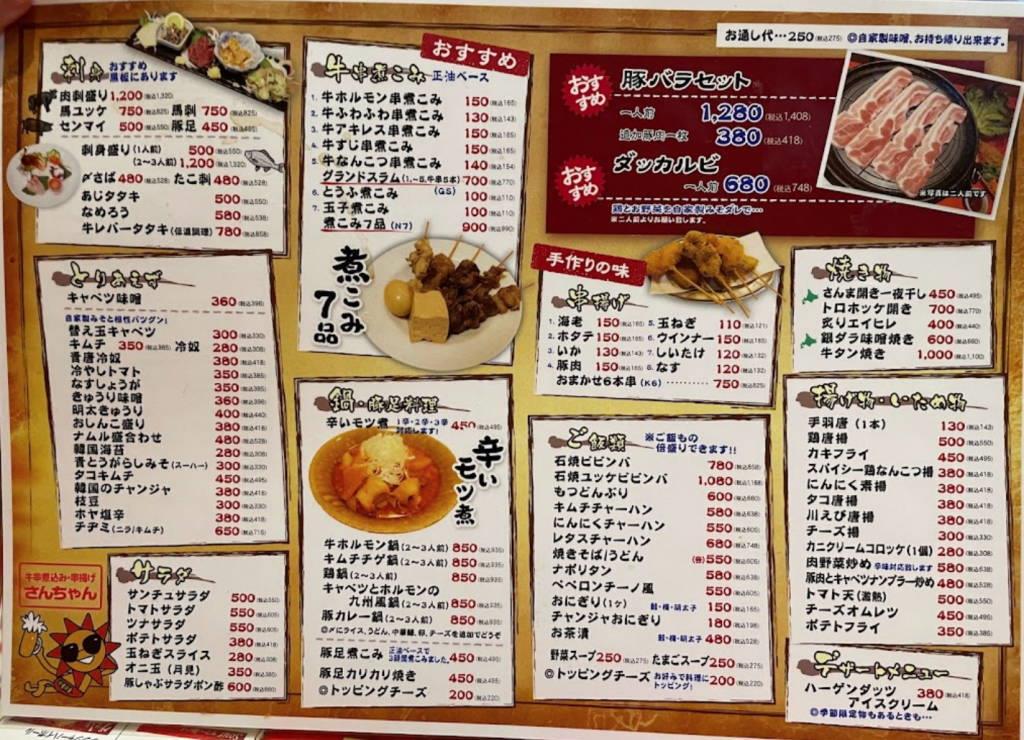 お通し代…250(税込275) ◎自家製味噌、お持ち帰り出来ます。
刺身 おすすめ黒板にあります
肉刺盛り 1,200(税込1,320)
馬ユッケ 750(税込825) 馬刺 750(税込825)
センマイ 500(税込550) 豚足 450(税込495)
刺身盛り(1人前) 500(税込550)
(2〜3人前) 1,200(税込1,320)
〆さば 480(税込528) たこ刺 480(税込528)
あじタタキ 500(税込550)
なめろう 580(税込638)
牛レバータタキ(低温調理) 780(税込858)
とりあえず
キャベツ味噌 360(税込396)
自家製みそと相性バツグン!
替え玉キャベツ 300(税込330)
キムチ 350(税込385) 冷奴 280(税込308)
青唐冷奴 380(税込418)
冷やしトマト 350(税込385)
なすしょうが 350(税込385)
きゅうり味噌 360(税込396)
明太きゅうり 400(税込440)
おしんこ盛り 380(税込418)
ナムル盛合わせ 480(税込528)
韓国海苔 280(税込308)
青とうがらしみそ(スーハー) 300(税込330)
タコキムチ 450(税込495)
韓国のチャンジャ 380(税込418)
枝豆 300(税込330)
ホヤ塩辛 380(税込418)
チヂミ(ニラ/キムチ) 650(税込715)
牛串煮込み・串揚げ
さんちゃん
サラダ
サンチュサラダ 500(税込550)
トマトサラダ 550(税込605)
ツナサラダ 550(税込605)
ポテトサラダ 380(税込418)
玉ねぎスライス 280(税込308)
オニ玉(月見) 350(税込385)
豚しゃぶサラダポン酢 600(税込660)
おすすめ
牛串煮こみ 正油ベース
1. 牛ホルモン串煮こみ 150(税込165)
2. 牛ふわふわ串煮こみ 130(税込143)
3. 牛アキレス串煮こみ 150(税込165)
4. 牛すじ串煮こみ 150(税込165)
5. 牛なんこつ串煮こみ 140(税込154)
グランドスラム(1.〜5.牛串5本) 700(税込770)
6. とうふ煮こみ (G5) 100(税込110)
7. 玉子煮こみ 100(税込110)
煮こみ7品(N7) 900(税込990)
煮こみ7品
鍋・豚足料理
辛いモツ煮 1辛・2辛・3辛対応します! 450(税込495)
辛いモツ煮
牛ホルモン鍋(2〜3人前) 850(税込935)
キムチチゲ鍋(2〜3人前) 850(税込935)
鶏鍋(2〜3人前) 850(税込935)
キャベツとホルモンの
九州風鍋(2〜3人前) 850(税込935)
豚カレー鍋(2〜3人前) 850(税込935)
◎〆にライス、うどん、中華麺、卵、チーズを追加でどうぞ
豚足煮こみ 正油ベースで3時間煮こみました。 450(税込495)
豚足カリカリ焼き 450(税込495)
◎トッピングチーズ 200(税込220)
おすすめ
豚バラセット
一人前 1,280(税込1,408)
追加豚肉一枚 380(税込418)
おすすめ
ダッカルビ
一人前 680(税込748)
鶏とお野菜を自家製みそダレで…
※二人前よりお願い致します。
※写真は二人前です
手作りの味
串揚げ
1. 海老 150(税込165) 5. 玉ねぎ 110(税込121)
2. ホタテ 150(税込165) 6. ウインナー 150(税込165)
3. いか 130(税込143) 7. しいたけ 120(税込132)
4. 豚肉 150(税込165) 8. なす 120(税込132)
おまかせ6本串(K6) ……… 750(税込825)
ご飯類 ※ご飯もの倍盛りできます!!
石焼ビビンバ 780(税込858)
石焼ユッケビビンバ 1,080(税込1188)
もつどんぶり 600(税込660)
キムチチャーハン 580(税込638)
にんにくチャーハン 550(税込605)
レタスチャーハン 680(税込748)
焼きそば/うどん (各)550(税込605)
ナポリタン 580(税込638)
ペペロンチーノ風 550(税込605)
おにぎり(1ケ) 鮭・梅・明太子 150(税込165)
チャンジャおにぎり 180(税込198)
お茶漬 鮭・梅・明太子 480(税込528)
野菜スープ 250(税込275) たまごスープ 250(税込275)
◎トッピングチーズ お好みで料理にトッピング! 200(税込220)
焼き物
さんま開き一夜干し 450(税込495)
トロホッケ開き 700(税込770)
炙りエイヒレ 400(税込440)
銀ダラ味噌焼き 600(税込660)
牛タン焼き 1,000(税込1,100)
揚げ物・いため物
手羽唐(1本) 130(税込143)
鶏唐揚 500(税込550)
カキフライ 450(税込495)
スパイシー鶏なんこつ揚 380(税込418)
にんにく素揚 380(税込418)
タコ唐揚 380(税込418)
川えび唐揚 380(税込418)
チーズ揚 300(税込330)
カニクリームコロッケ(1個) 280(税込308)
肉野菜炒め 辛味対応致します 580(税込638)
豚肉とキャベツナンプラー炒め 480(税込528)
トマト天(激熱) 500(税込550)
チーズオムレツ 450(税込495)
ポテトフライ 350(税込385)
デザートメニュー
ハーゲンダッツ
アイスクリーム 380(税込418)
◎季節限定物もあるときも…